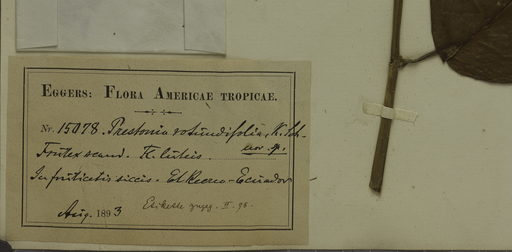 EGGERS: FLORA AMERICAE TROPICAE.
Nr. 15078. Prestonia rotundifolia, K. Sch.
nov. sp.
Frutex scand. Fl. luteis.
In fruticetis siccis. El Recreo - Ecuador
Aug. 1893
Etikette zugeg. II. 96.